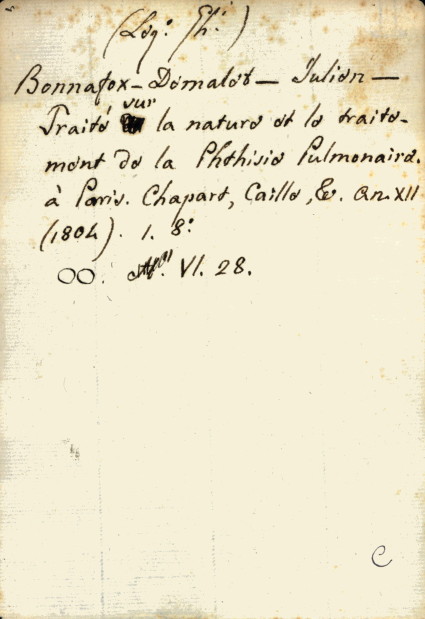 (Leg: Th:)
Bonnafox-Demalet - Julien -
Traité sur la nature et le traite-
ment de la Phthisie Pulmonaire.
à Paris. Chapart, Caille, &. An. XII
(1804). 1. 8:
OO. VI. 28.
C